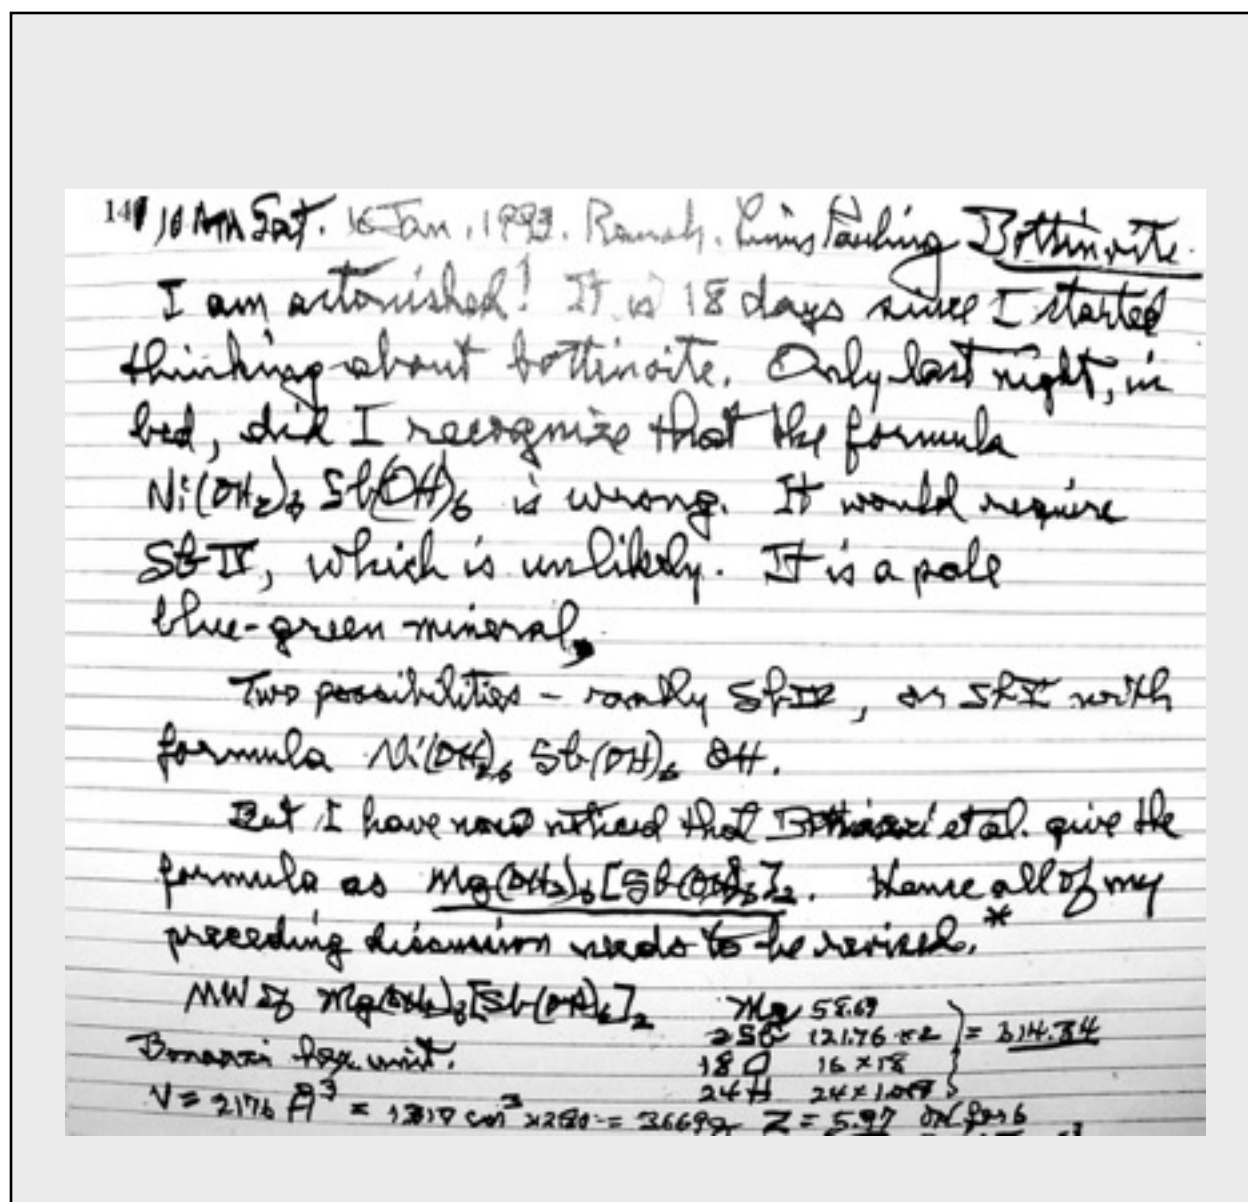 141 10 AM Sat. 16 Jan. 1993. Ranch. Linus Pauling Bottinoite.
I am astonished! It is 18 days since I started
thinking about bottinoite. Only last night, in
bed, did I recognize that the formula
Ni(OH₂)₆ Sb(OH)₆ is wrong. It would require
Sb IV, which is unlikely. It is a pale
blue-green mineral,
Two possibilities - Sb IV, or Sb V with
formula Ni(OH₂)₆ Sb(OH)₆ OH.
But I have now noticed that et al. give the
formula as Mg(OH₂)₆[Sb(OH)₆]₂. Hence all of my
preceding discussion needs to be revised.*
MW of Mg(OH₂)₆[Sb(OH)₆]₂ Mg 58.69
2 Sb 121.76 x 2 =
Bonazzi hex unit. 18 O 16 x 18
24 H 24 x 1.008
V = 2176 Å³ = cm³ Z = 5.97 OK for 6